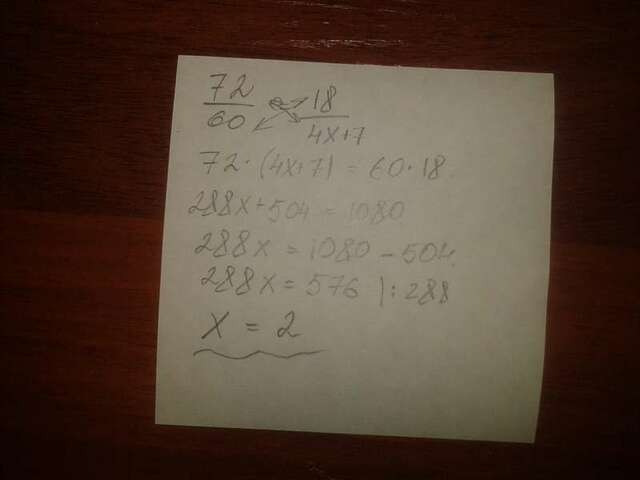 72/60 = 18/4x+7
72·(4x+7) = 60·18.
288x+504=1080
288x = 1080 - 504.
288x = 576 |:288
x = 2